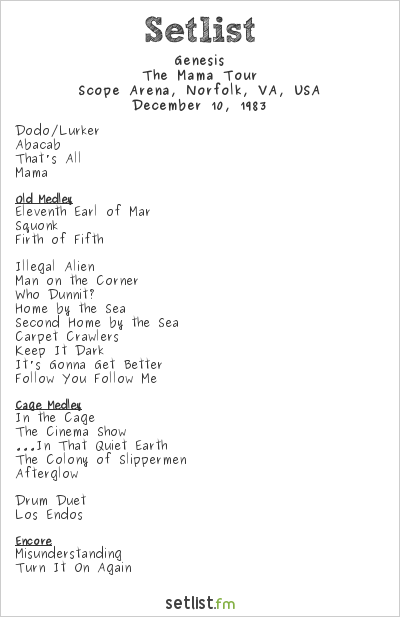 Setlist
Genesis
The Mama Tour
Scope Arena, Norfolk, VA, USA
December 10, 1983
Dodo/Lurker
Abacab
That's All
Mama
Old Medley
Eleventh Earl of Mar
Squonk
Firth of Fifth
Illegal Alien
Man on the Corner
Who Dunnit?
Home by the Sea
Second Home by the Sea
Carpet Crawlers
Keep It Dark
It's Gonna Get Better
Follow You Follow Me
Cage Medley
In the Cage
The Cinema Show
...In That Quiet Earth
The Colony of Slippermen
Afterglow
Drum Duet
Los Endos
Encore
Misunderstanding
Turn It On Again
setlist.fm